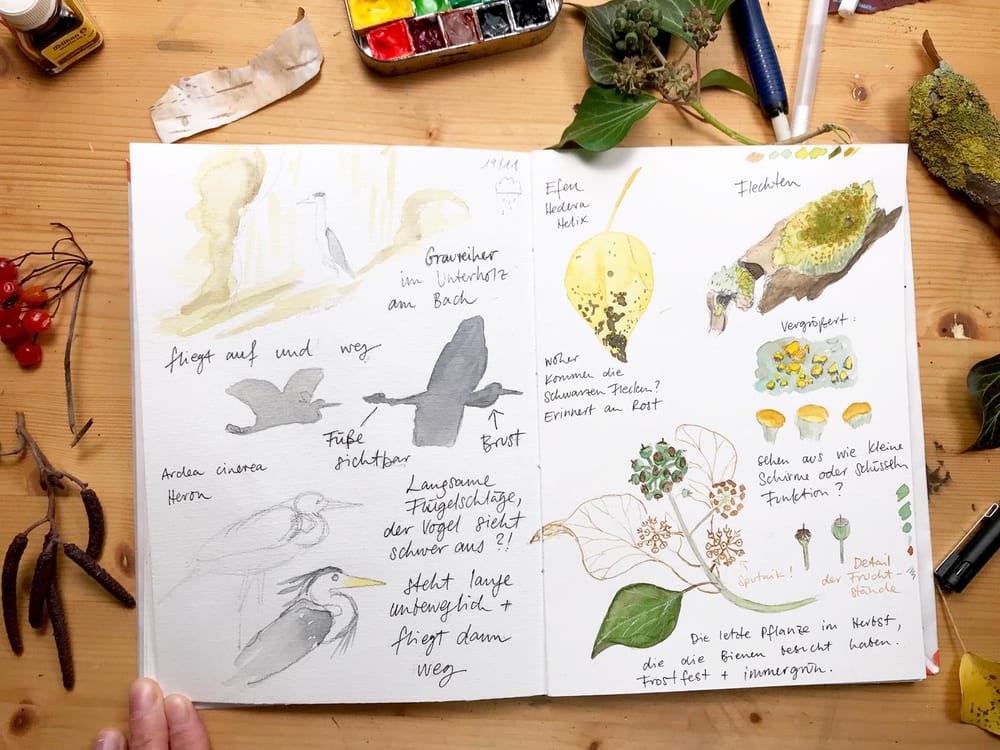 19/11
Graureiher
im Unterholz
am Bach
fliegt auf und weg
Füße
sichtbar
Brust
Ardea cinerea
Heron
Langsame
Flügelschläge,
der Vogel sieht
schwer aus?!
steht lange
unbeweglich +
fliegt dann
weg
Efeu
Hedera
Helix
woher
kommen die
schwarzen Flecken?
Erinnert an Rost
Flechten
vergrößert:
sehen aus wie kleine
Schirme oder Schüsseln
Funktion?
Sputnik!
Detail
der Frucht-
stände
Die letzte Pflanze im Herbst,
die die Bienen besucht haben.
Frostfest + immergrün.